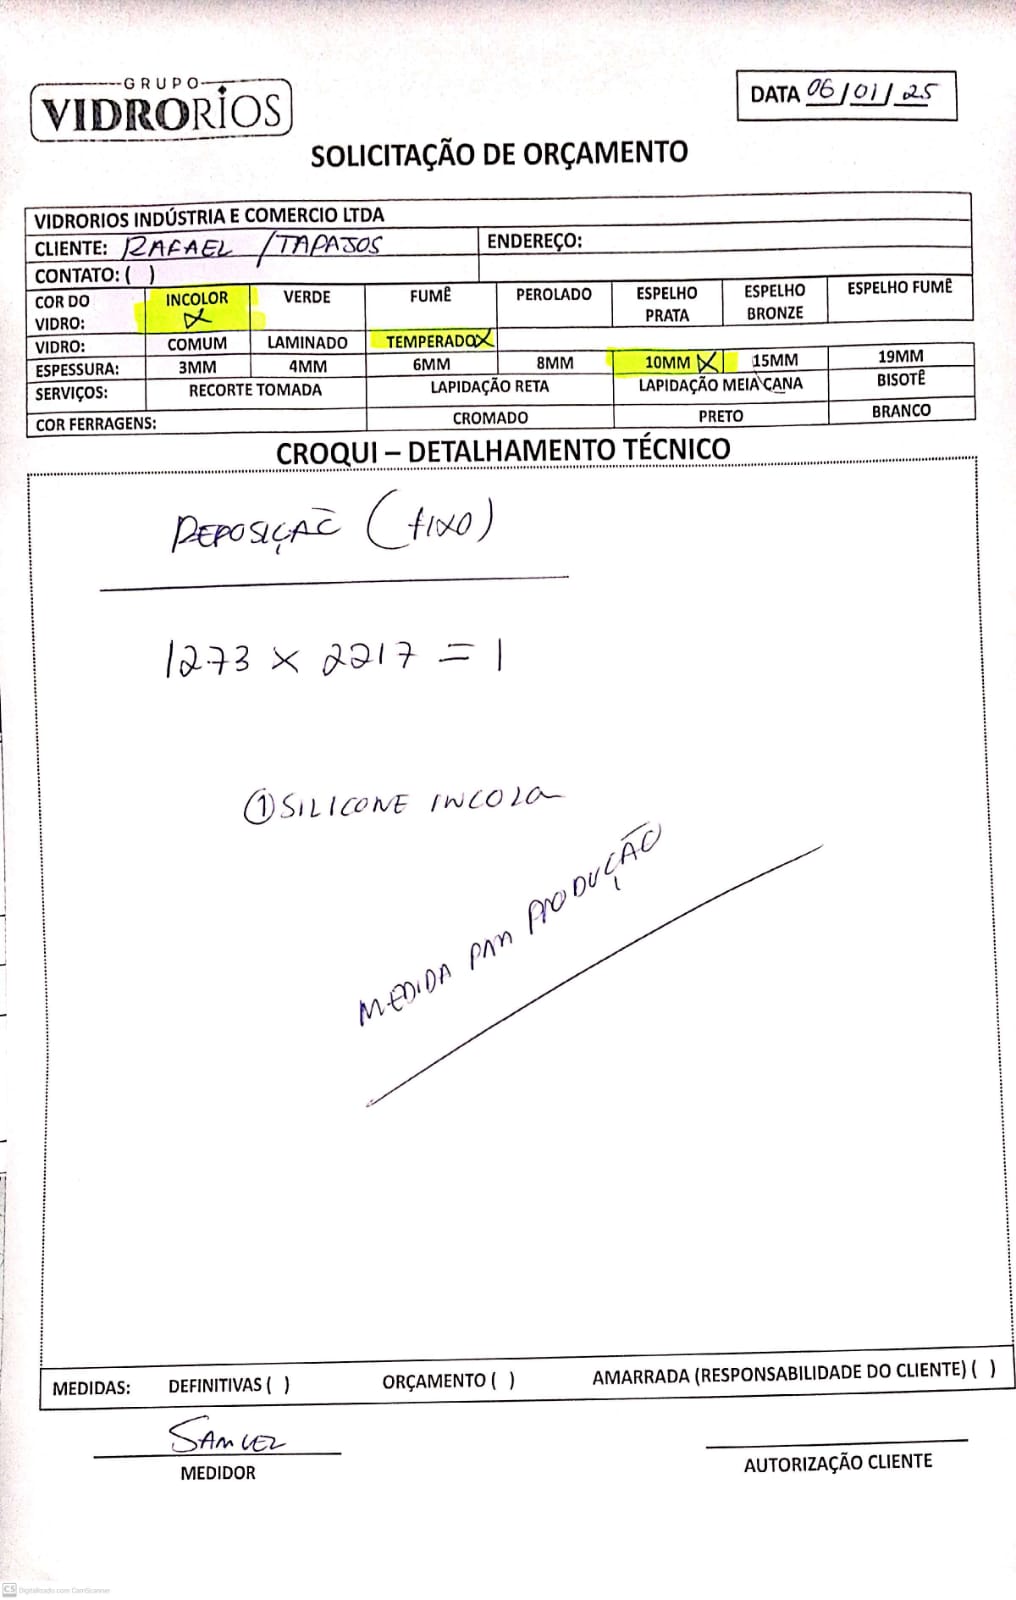 GRUPO
VIDRORIOS
DATA 06/01/25
SOLICITAÇÃO DE ORÇAMENTO
VIDRORIOS INDÚSTRIA E COMERCIO LTDA
CLIENTE: RAFAEL /TAPAJOS ENDEREÇO:
CONTATO: ( )
COR DO VIDRO: INCOLOR X VERDE FUMÊ PEROLADO ESPELHO PRATA ESPELHO BRONZE ESPELHO FUMÊ
VIDRO: COMUM LAMINADO TEMPERADO X
ESPESSURA: 3MM 4MM 6MM 8MM 10MM X 15MM 19MM
SERVIÇOS: RECORTE TOMADA LAPIDAÇÃO RETA LAPIDAÇÃO MEIA CANA BISOTÊ
COR FERRAGENS: CROMADO PRETO BRANCO
CROQUI – DETALHAMENTO TÉCNICO
REPOSIÇÃO (FIXO)
1273 X 2217 = 1
① SILICONE INCOLOR
MEDIDA PARA PRODUÇÃO
MEDIDAS: DEFINITIVAS ( ) ORÇAMENTO ( ) AMARRADA (RESPONSABILIDADE DO CLIENTE) ( )
SAMUEL
MEDIDOR AUTORIZAÇÃO CLIENTE
CS Digitalizado com CamScanner